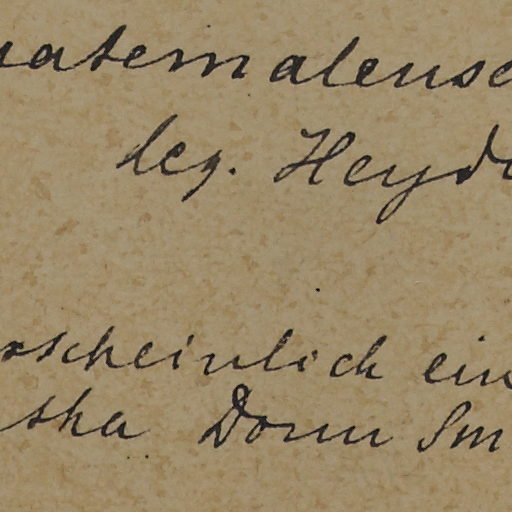 uatemalense
leg. Heyd
rscheinlich ein
ska Donn Sm